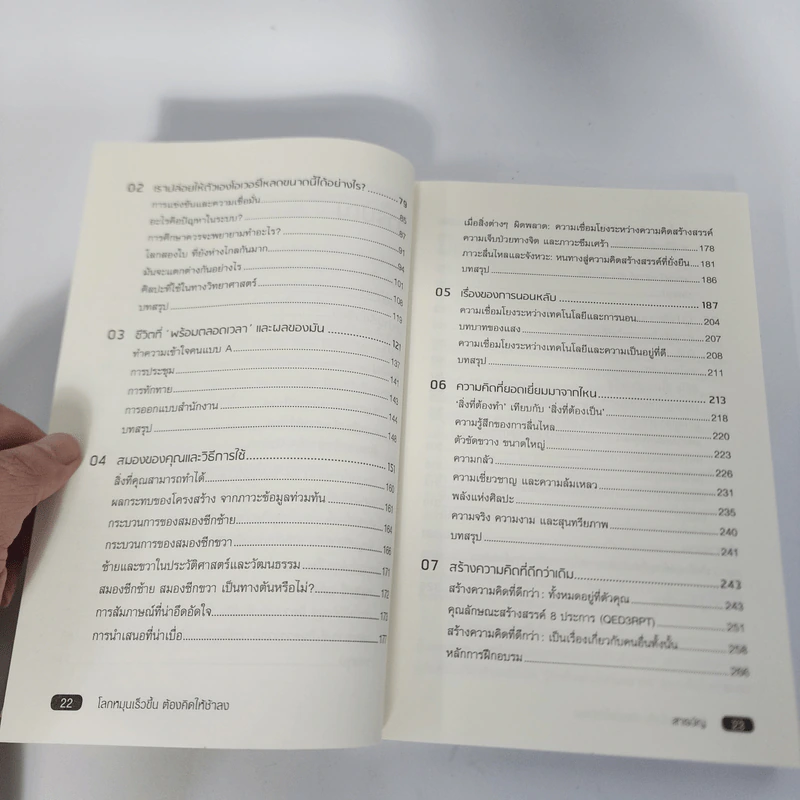 02 เราปล่อยให้ตัวเองโอเวอร์โหลดขนาดนี้ได้อย่างไร? 79
การแข่งขันและความเชื่อมั่น 85
อะไรคือปัญหาในระบบ? 87
การศึกษาควรจะพยายามทำอะไร? 91
โลกสองใบ ที่ยังห่างไกลกันมาก 94
มันจะแตกต่างกันอย่างไร 101
ศิลปะที่ใช้ในทางวิทยาศาสตร์ 108
บทสรุป 119
03 ชีวิตที่ ‘พร้อมตลอดเวลา’ และผลของมัน 121
ทำความเข้าใจคนแบบ A 137
การประชุม 141
การทักทาย 143
การออกแบบสำนักงาน 144
บทสรุป 148
04 สมองของคุณและวิธีการใช้ 151
สิ่งที่คุณสามารถทำได้ 160
ผลกระทบของโครงสร้าง จากภาวะข้อมูลท่วมท้น 161
กระบวนการของสมองซีกซ้าย 164
กระบวนการของสมองซีกขวา 166
ซ้ายและขวาในประวัติศาสตร์และวัฒนธรรม 171
สมองซีกซ้าย สมองซีกขวา เป็นทางตันหรือไม่? 172
การสัมภาษณ์ที่น่าอึดอัดใจ 175
การนำเสนอที่น่าเบื่อ 177
22 โลกหมุนเร็วขึ้น ต้องคิดให้ช้าลง
เมื่อสิ่งต่างๆ ผิดพลาด: ความเชื่อมโยงระหว่างความคิดสร้างสรรค์
ความเจ็บป่วยทางจิต และภาวะซึมเศร้า 178
ภาวะลื่นไหลและจังหวะ: หนทางสู่ความคิดสร้างสรรค์ที่ยั่งยืน 181
บทสรุป 186
05 เรื่องของการนอนหลับ 187
ความเชื่อมโยงระหว่างเทคโนโลยีและการนอน 204
บทบาทของแสง 207
ความเชื่อมโยงระหว่างเทคโนโลยีและความเป็นอยู่ที่ดี 208
บทสรุป 211
06 ความคิดที่ยอดเยี่ยมมาจากไหน 213
‘สิ่งที่ต้องทำ’ เทียบกับ ‘สิ่งที่ต้องเป็น’ 218
ความรู้สึกของการลื่นไหล 220
ตัวขัดขวาง ขนาดใหญ่ 223
ความกลัว 226
ความเชี่ยวชาญ และความล้มเหลว 231
พลังแห่งศิลปะ 235
ความจริง ความงาม และสุนทรียภาพ 240
บทสรุป 241
07 สร้างความคิดที่ดีกว่าเดิม 243
สร้างความคิดที่ดีกว่า: ทั้งหมดอยู่ที่ตัวคุณ 243
คุณลักษณะสร้างสรรค์ 8 ประการ (QED3RPT) 251
สร้างความคิดที่ดีกว่า: เป็นเรื่องเกี่ยวกับคนอื่นทั้งนั้น 258
หลักการฝึกอบรม 266
สารบัญ 23